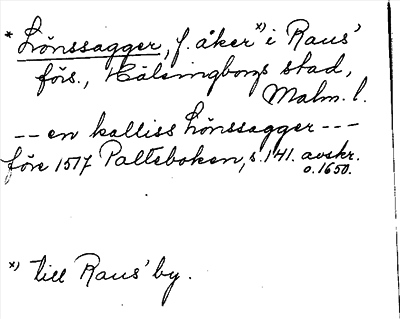 * Lönssagger, f. åker x) i Raus'
förs., Hälsingborgs stad,
Malm. l.
-- en kalliss Lönssagger ---
före 1517 Palteboken, s. 141. avskr.
o. 1650.
x) till Raus' by.